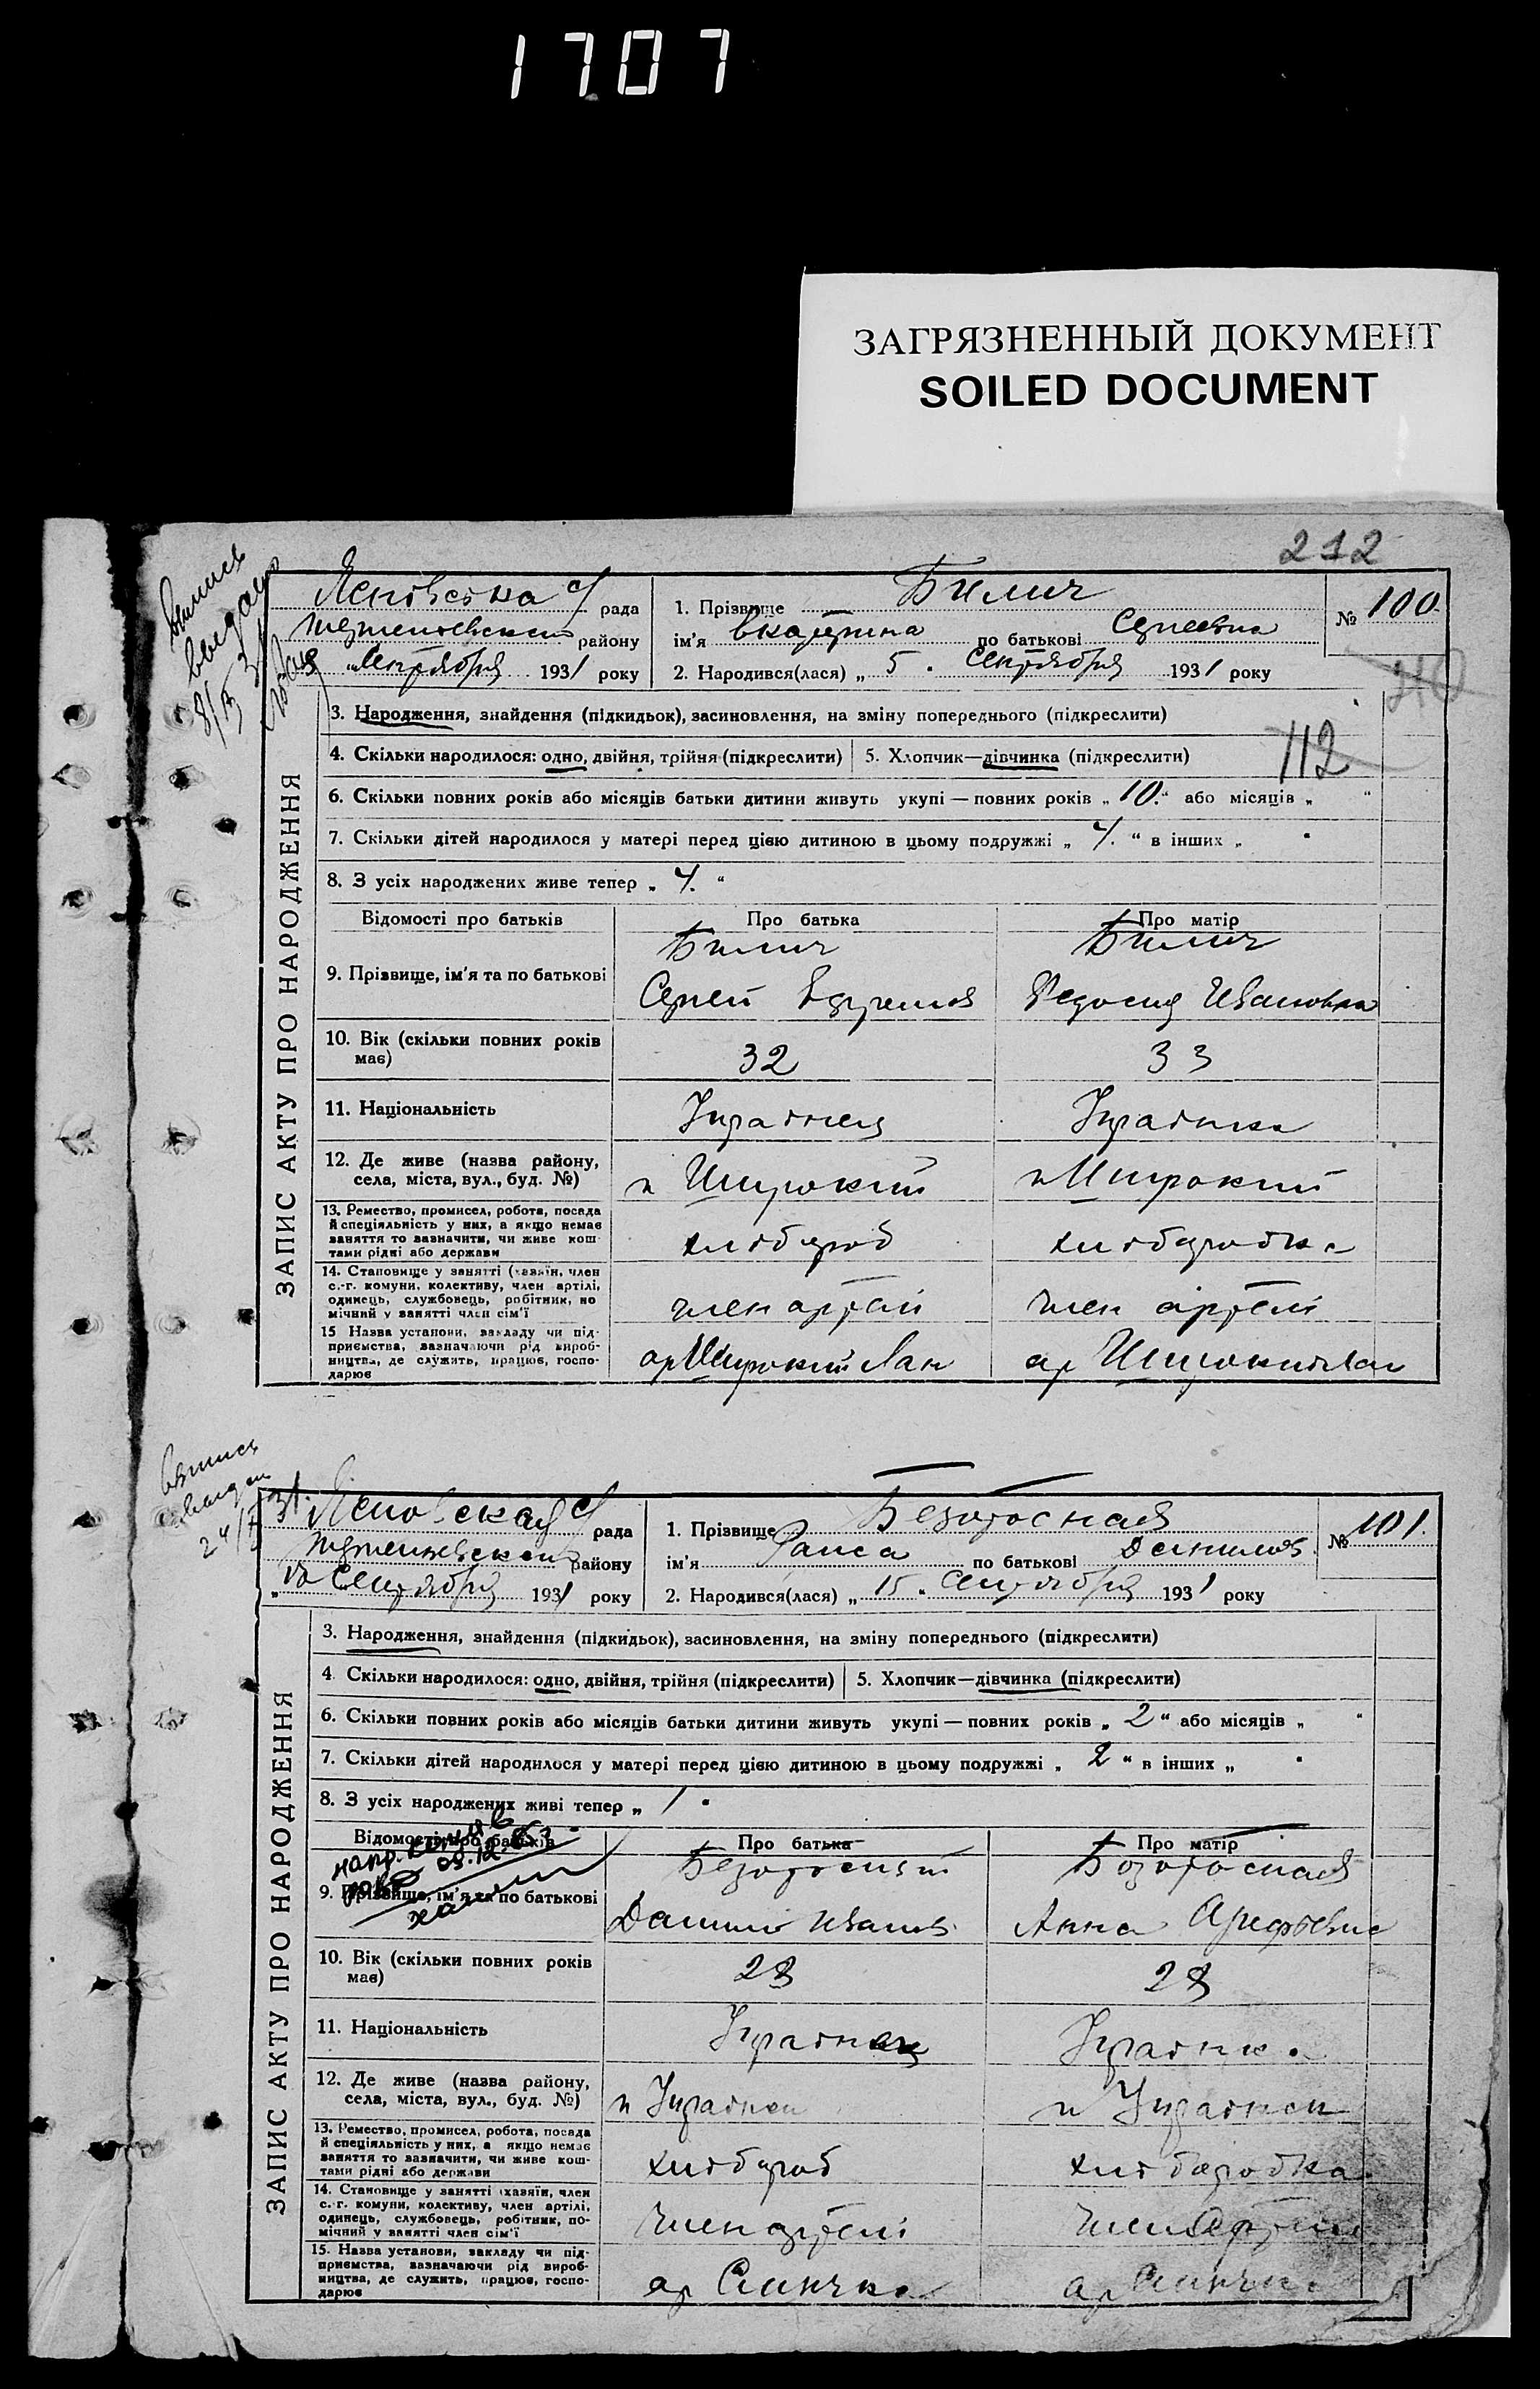 1707
ЗАГРЯЗНЕННЫЙ ДОКУМЕНТ
SOILED DOCUMENT
212
рада
району
Сентября 1931 року
1. Прізвище Билич
ім'я Екатерина по батькові Сергеевна
2. Народився(лася) „ 5 " Сентября 1931 року
№ 100
112
ЗАПИС АКТУ ПРО НАРОДЖЕННЯ
3. Народження, знайдення (підкидьок), засиновлення, на зміну попереднього (підкреслити)
4. Скільки народилося: одно, двійня, трійня (підкреслити)
5. Хлопчик—дівчинка (підкреслити)
6. Скільки повних років або місяців батьки дитини живуть укупі — повних років „ 10. " або місяців „ "
7. Скільки дітей народилося у матері перед цією дитиною в цьому подружжі „ 4. " в інших „ "
8. З усіх народжених живе тепер „ 4. "
Відомості про батьків
Про батька
Про матір
9. Прізвище, ім'я та по батькові
Билич
Сергей
Билич
Федосия Ивановна
10. Вік (скільки повних років має)
32
33
11. Національність
12. Де живе (назва району, села, міста, вул., буд. №)
п Широкий
п Широкий
13. Ремество, промисел, робота, посада й спеціяльність у них, а якщо немає заняття то зазначити, чи живе коштами рідні або держави
хлібороб
хліборобка
14. Становище у занятті (хазяїн, член с.-г. комуни, колективу, член артілі, одинець, службовець, робітник, помічний у занятті член сім'ї
член артели
член артели
15 Назва установи, закладу чи підприємства, зазначаючи рід виробництва, де служить, працює, господарює
ар Широкий Лан
ар Широкий Лан
рада
району
Сентября 1931 року
1. Прізвище
ім'я Раиса по батькові Данилов
2. Народився(лася) „ 15 " Сентября 1931 року
№ 101.
ЗАПИС АКТУ ПРО НАРОДЖЕННЯ
3. Народження, знайдення (підкидьок), засиновлення, на зміну попереднього (підкреслити)
4. Скільки народилося: одно, двійня, трійня (підкреслити)
5. Хлопчик—дівчинка (підкреслити)
6. Скільки повних років або місяців батьки дитини живуть укупі — повних років „ 2 " або місяців „ "
7. Скільки дітей народилося у матері перед цією дитиною в цьому подружжі „ 2 " в інших „ "
8. З усіх народжених живі тепер „ 1 "
Відомості про батьків
Про батька
Про матір
9. Прізвище, ім'я та по батькові
Данило Иванов
Анна Арефьевна
10. Вік (скільки повних років має)
28
28
11. Національність
12. Де живе (назва району, села, міста, вул., буд. №)
13. Ремество, промисел, робота, посада й спеціяльність у них, а якщо немає заняття то зазначити, чи живе коштами рідні або держави
хлібороб
хліборобка
14. Становище у занятті (хазяїн, член с.-г. комуни, колективу, член артілі, одинець, службовець, робітник, помічний у занятті член сім'ї
член артели
член артели
15. Назва установи, закладу чи підприємства, зазначаючи рід виробництва, де служить, працює, господарює